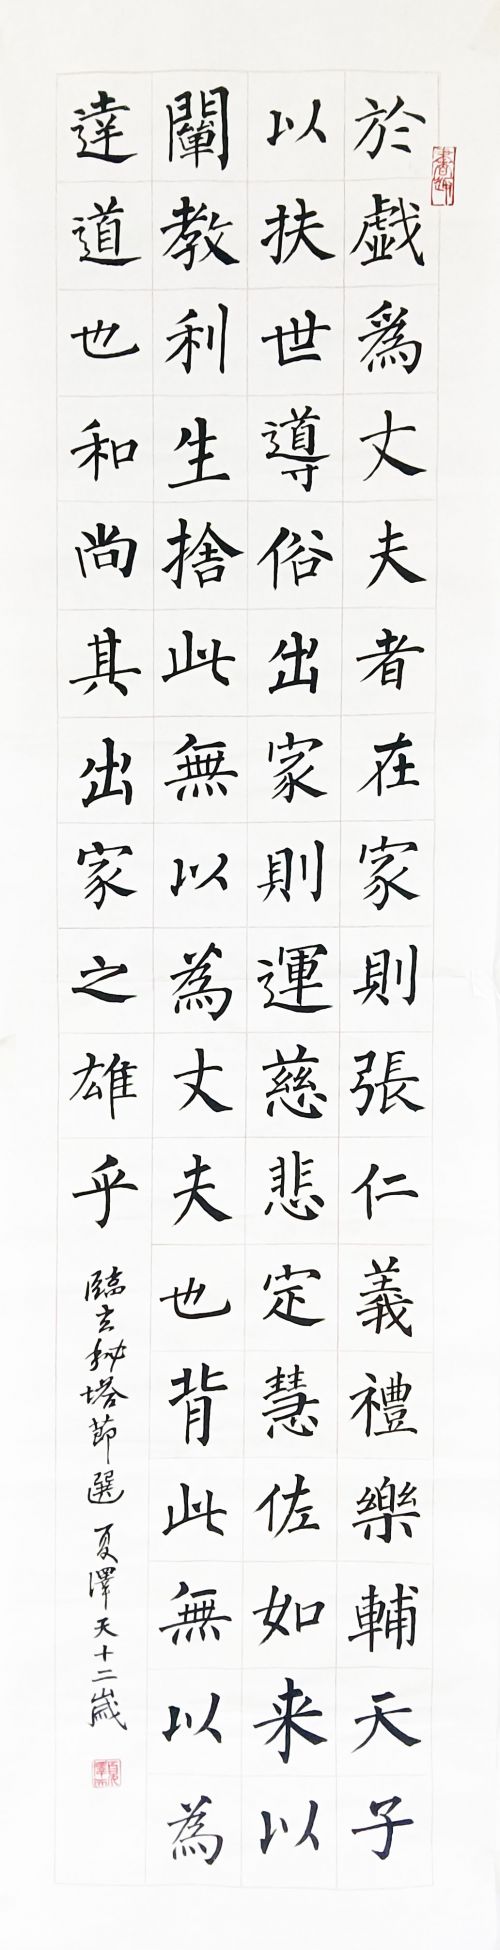 於戯爲丈夫者在家則張仁義禮樂輔天子
以扶世導俗出家則運慈悲定慧佐如来以
闡教利生捨此無以為丈夫也背此無以為
達道也和尚其出家之雄乎
臨玄秘塔節選 夏澤天十二歲